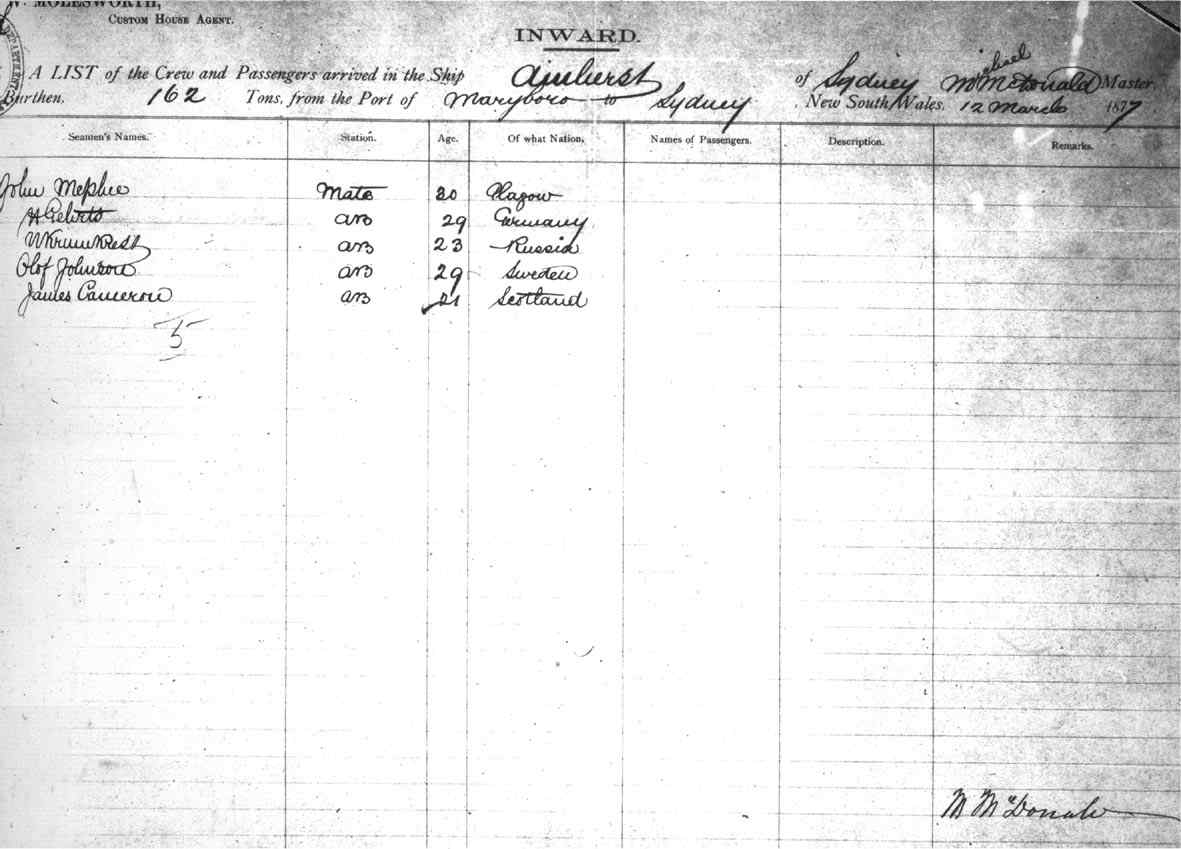 W. MOLESWORTH,
CUSTOM HOUSE AGENT.
INWARD.
A LIST of the Crew and Passengers arrived in the Ship Amherst of Sydney Michael McDonald Master,
Burthen, 162 Tons, from the Port of Maryboro to Sydney New South Wales, 12 March 1877
Seamen's Names. Station. Age. Of what Nation. Names of Passengers. Description. Remarks.
John Mephee Mate 30 Glasgow
H AB 29 Germany
AB 23 Russia
Olof Johnson AB 29 Sweden
James Cameron AB 21 Scotland
5
M McDonald